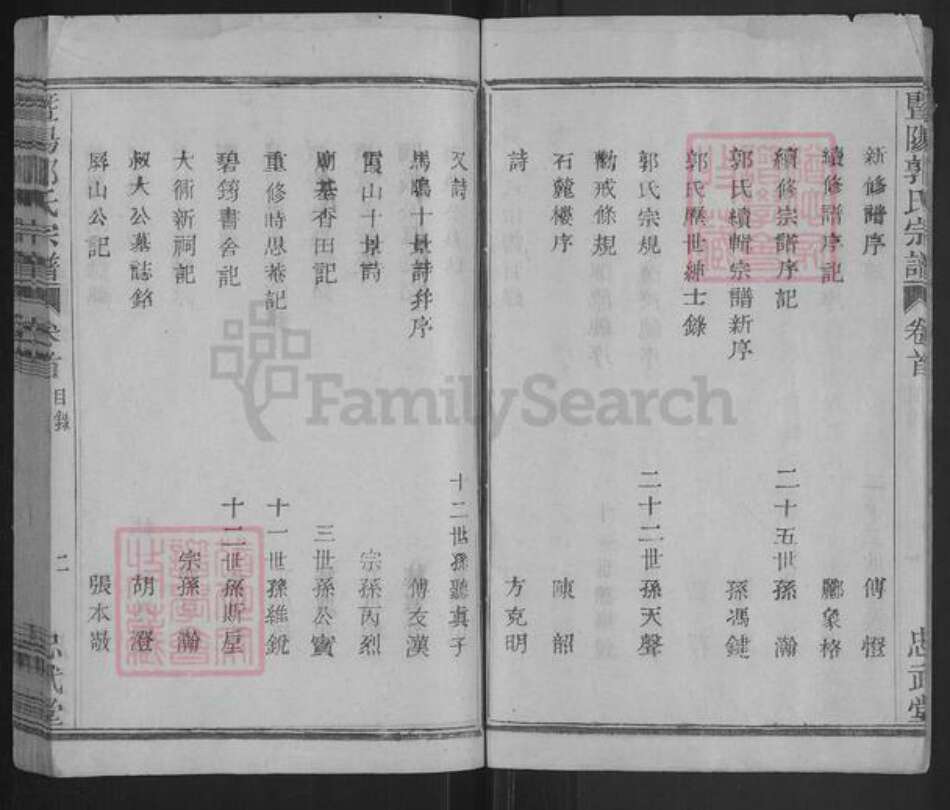 暨陽郭氏宗譜 卷首 忠武堂
新修譜序 傅㙐
續修譜序記 酈象格
續修宗譜序記 二十五世孫 瀚
郭氏續輯宗譜新序 孫馮鍵
郭氏歷世紳士錄
郭氏宗規 二十二世孫天聲
勸戒條規
石麓樓序 陳韶
詩 方克明
又詩 十二世孫聽真子
馬鳴十景詩并序 傅友漢
霞山十景詩 宗孫丙烈
廟基香田記 三世孫公實
重修時思菴記 十一世孫維銳
碧筠書舍記 十二世孫斯垕
大衕新祠記 宗孫 瀚
叔大公墓誌銘 胡 澄
屏山公記 張本敬
暨陽郭氏宗譜 卷首 目錄 二 忠武堂
FamilySearch